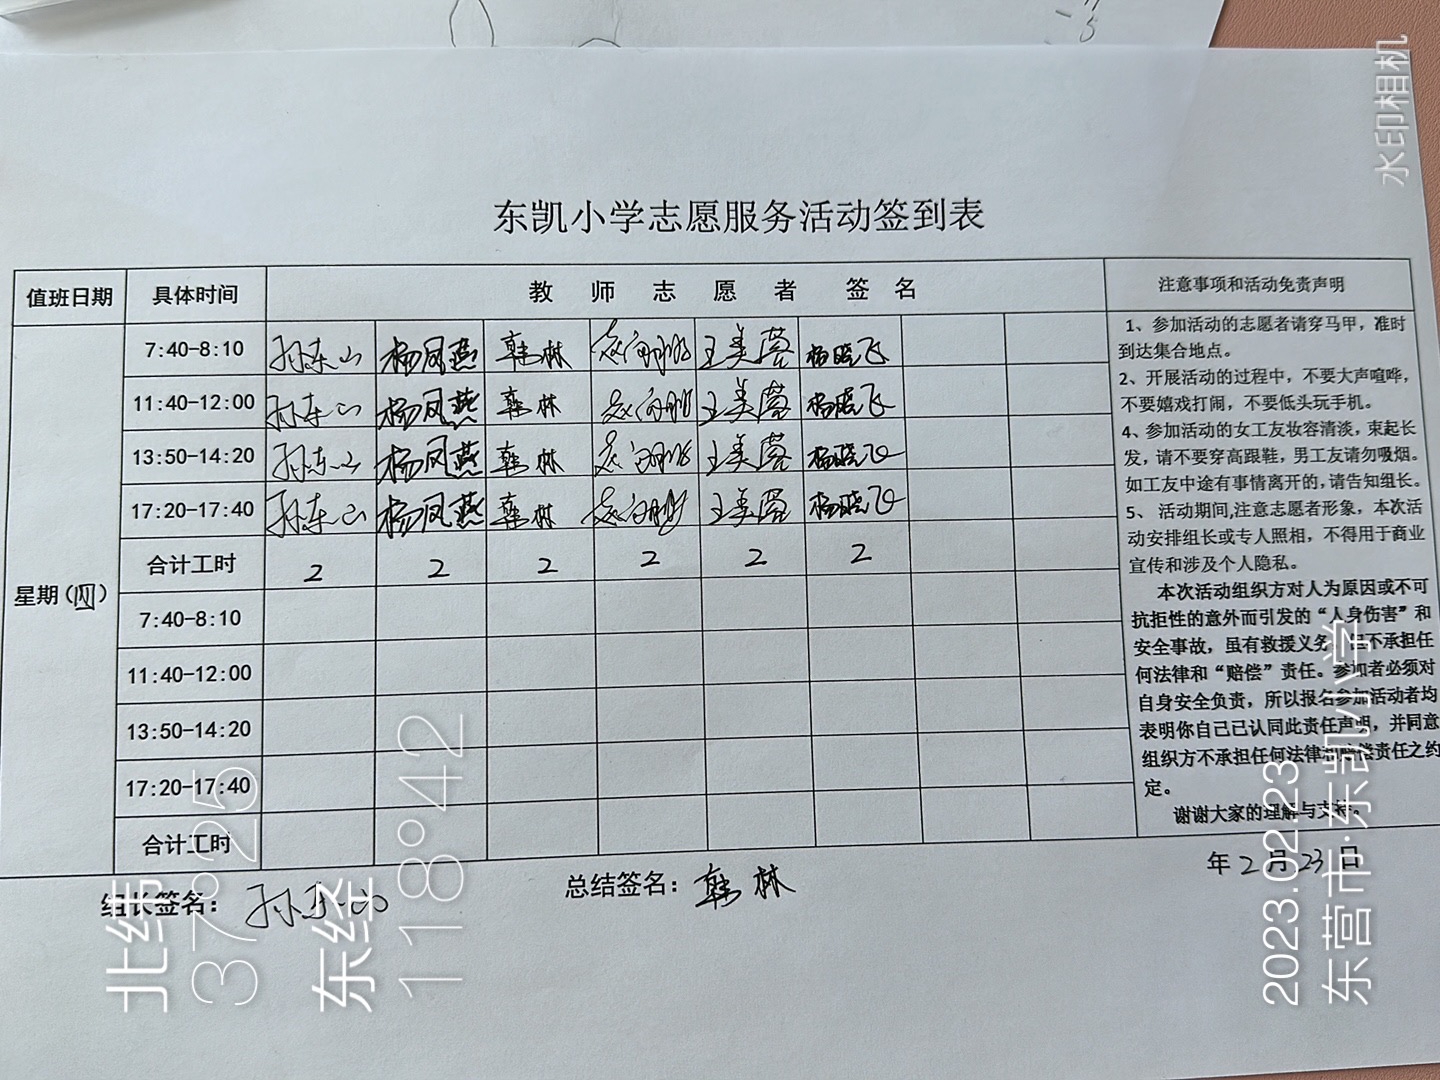 水印相机
东凯小学志愿服务活动签到表
值班日期 具体时间 教师志愿者 签名 注意事项和活动免责声明
7:40-8:10 孙东山 杨凤燕 韩林 王美蓉 杨晓飞
11:40-12:00 孙东山 杨凤燕 韩林 王美蓉 杨晓飞
13:50-14:20 孙东山 杨凤燕 韩林 王美蓉 杨晓飞
17:20-17:40 孙东山 杨凤燕 韩林 王美蓉 杨晓飞
合计工时 2 2 2 2 2 2
星期(四)
7:40-8:10
11:40-12:00
13:50-14:20
17:20-17:40
合计工时
1、参加活动的志愿者请穿马甲，准时
到达集合地点。
2、开展活动的过程中，不要大声喧哗，
不要嬉戏打闹，不要低头玩手机。
4、参加活动的女工友妆容清淡，束起长
发，请不要穿高跟鞋，男工友请勿吸烟。
如工友中途有事情离开的,请告知组长。
5、活动期间,注意志愿者形象，本次活
动安排组长或专人照相，不得用于商业
宣传和涉及个人隐私。
本次活动组织方对人为原因或不可
抗拒性的意外而引发的“人身伤害”和
安全事故，虽有救援义务，但不承担任
何法律和“赔偿”责任。参加者必须对
自身安全负责，所以报名参加活动者均
表明你自己已认同此责任声明，并同意
组织方不承担任何法律和赔偿责任之约
定。
谢谢大家的理解与支持。
组长签名：孙东山 总结签名：韩林 年2月23日
北纬
37°25
东经
118°42
2023.02.23
东营市·东凯小学